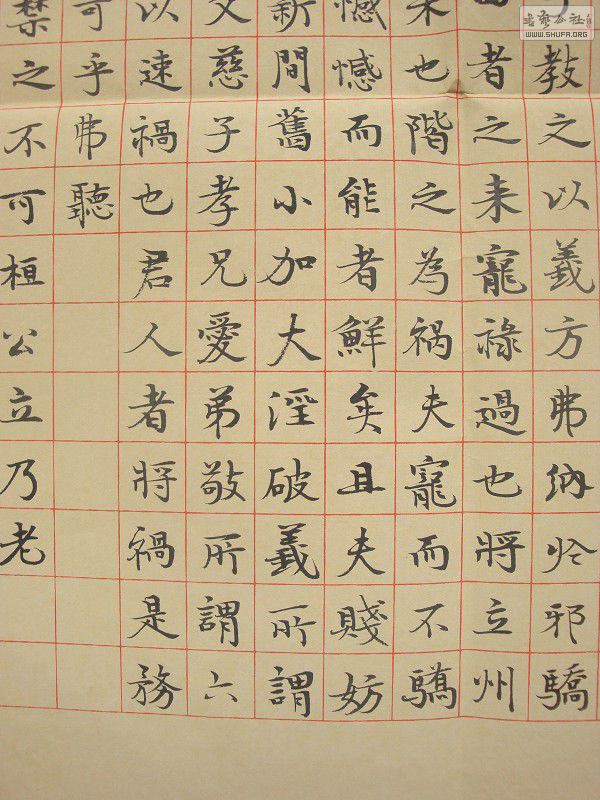 教文以義方弗納於邪驕
者之来寵祿過也將立州
未也階之為禍夫寵而不驕
憾憾而能者鮮矣且夫賤妨
新間舊小加大淫破義所謂
慈子孝兄愛弟敬所謂六
以速禍也君人者將禍是務
可乎弗聽
禁之不可桓公立乃老
書藝公社
WWW.SHUFA.ORG